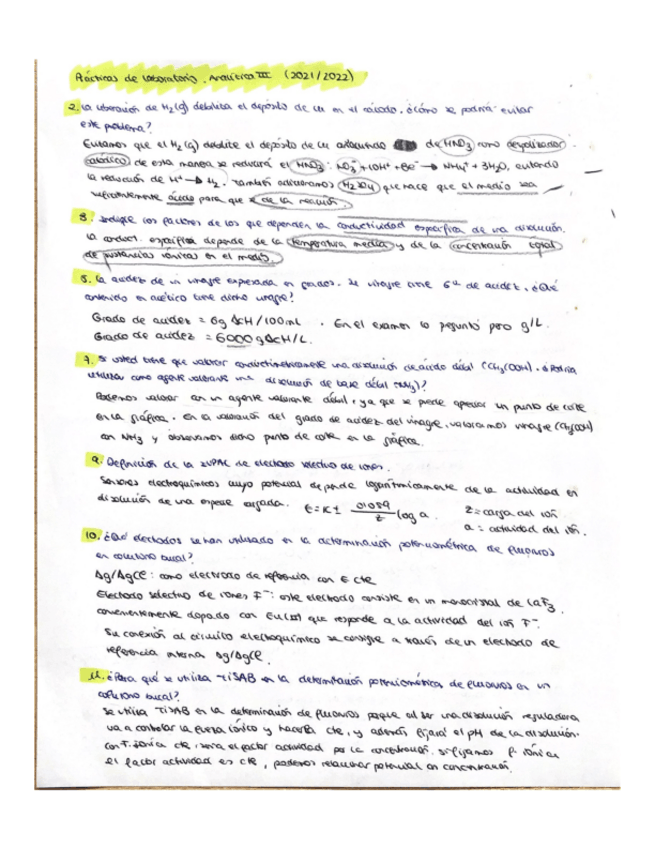 Prácticas de laboratorio. Analítica III (2021/2022)
2. La liberación de H2(g) debilita el depósito de Cu en el cátodo. ¿Cómo se podría evitar
este problema?
Evitamos que el H2(g) debilite el depósito de Cu adicionando de HNO3 como despolarizador
catódico, de esta manera se reducirá el HNO3: NO3⁻ + 10H⁺ + 8e⁻ → NH4⁺ + 3H2O, evitando
la reducción de H⁺ → H2. También adicionamos H2SO4 que hace que el medio sea
suficientemente ácido para que se de la reacción.
3. Indique los factores de los que dependen la conductividad específica de una disolución.
La conduct. específica depende de la temperatura media y de la concentración total
de sustancias iónicas en el medio.
5. La acidez de un vinagre expresada en grados. Si vinagre tiene 6º de acidez. ¿Qué
contenido en acético tiene dicho vinagre?
Grado de acidez = 6g AcH/100mL . En el examen lo preguntó pero g/L.
Grado de acidez = 6000g AcH/L.
7. Si usted tiene que valorar conductimétricamente una disolución de ácido débil (CH3COOH). ¿Podría
utilizar como agente valorante una disolución de base débil (NH3)?
Podemos valorar con un agente valorante débil, ya que se puede apreciar un punto de corte
en la gráfica. En la valoración del grado de acidez del vinagre, valoramos vinagre (CH3COOH)
con NH3 y observamos dicho punto de corte en la gráfica.
9. Definición de la IUPAC de electrodo selectivo de iones.
Sensores electroquímicos cuyo potencial depende logarítmicamente de la actividad en
disolución de una especie cargada. E = K ± 0'059/z log a. z = carga del ión
a = actividad del ión.
10. ¿Qué electrodos se han utilizado en la determinación potenciométrica de fluoruros
en colutorio bucal?
Ag/AgCl: como electrodo de referencia con E cte
Electrodo selectivo de iones F⁻: este electrodo consiste en un monocristal de LaF3,
convenientemente dopado con Eu(II) que responde a la actividad del ión F⁻.
Su conexión al circuito electroquímico se consigue a través de un electrodo de
referencia interna Ag/AgCl.
11. ¿Para qué se utiliza TISAB en la determinación potenciométrica de fluoruros en un
colutorio bucal?
Se utiliza TISAB en la determinación de fluoruros porque al ser una disolución reguladora,
va a controlar la fuerza iónica y hacerla cte, y además fijará el pH de la disolución.
Con F. iónica cte, sería el factor actividad por la concentración. Si fijamos f. iónica
el factor actividad es cte, podemos relacionar potencial con concentración.